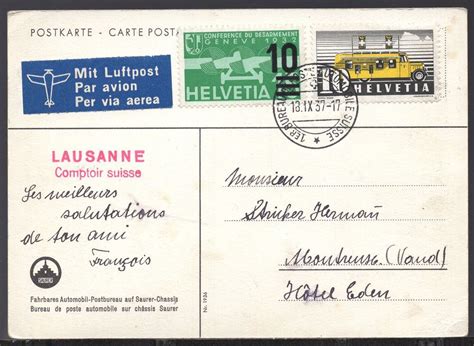 POSTKARTE - CARTE POSTA
Mit Luftpost
Par avion
Per via aerea
CONFÉRENCE DU DÉSARMEMENT
GENÈVE 1932
10
HELVETIA
10
HELVETIA
1ER BUREAU
AUTOMOBILE SUISSE
13.IX.37-17
LAUSANNE
Comptoir suisse
Les meilleurs
salutations
de ton ami
François
Monsieur
Stricker Hermañ
Montreux (Vaud)
Hôtel Eden
SAURER
Fahrbares Automobil-Postbureau auf Saurer-Chassis
Bureau de poste automobile sur châssis Saurer
Nr. 1936